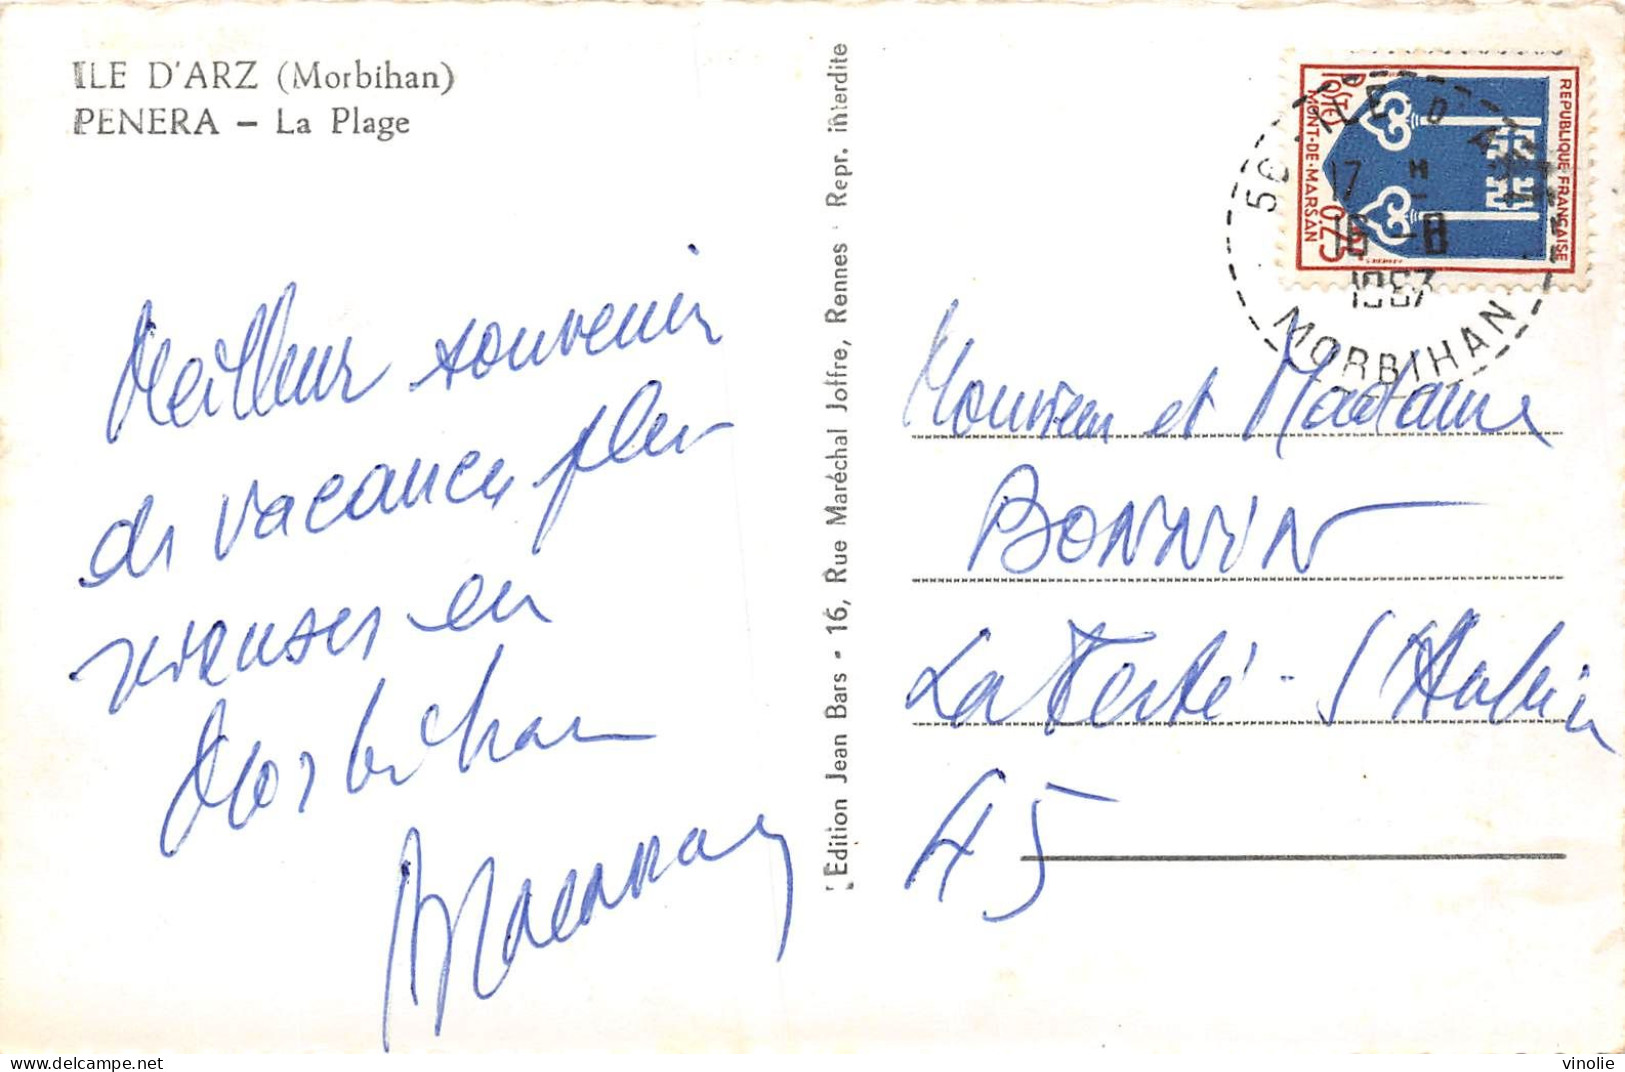 ILE D'ARZ (Morbihan)
PENERA – La Plage
Meilleur souvenir
de vacances plu
vieuses en
Morbihan
Edition Jean Bars - 16, Rue Maréchal Joffre, Rennes · Repr. interdite
REPUBLIQUE FRANÇAISE
POSTES
0,25
MONT-DE-MARSAN
56 ILE D'ARZ
17 H
16 -8
1967
MORBIHAN
Monsieur et Madame
BONNIN
La Ferté - St Aubin
45
vinolie